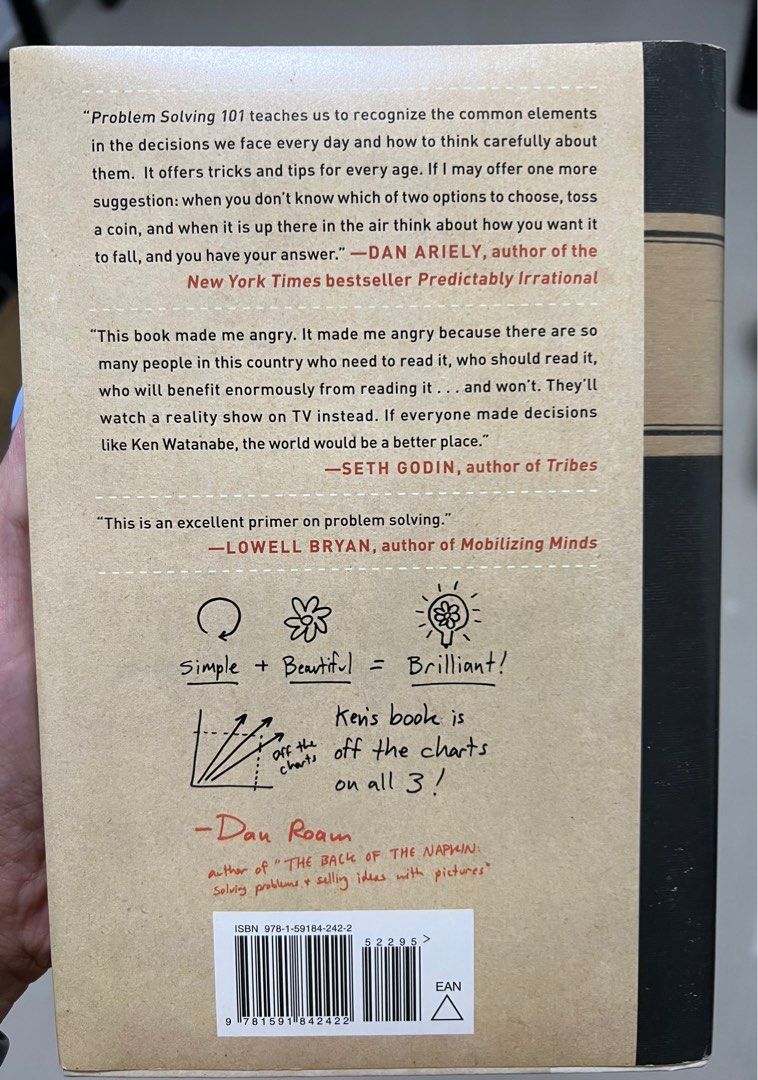 “Problem Solving 101 teaches us to recognize the common elements
in the decisions we face every day and how to think carefully about
them. It offers tricks and tips for every age. If I may offer one more
suggestion: when you don’t know which of two options to choose, toss
a coin, and when it is up there in the air think about how you want it
to fall, and you have your answer.” —DAN ARIELY, author of the
New York Times bestseller Predictably Irrational
“This book made me angry. It made me angry because there are so
many people in this country who need to read it, who should read it,
who will benefit enormously from reading it . . . and won’t. They’ll
watch a reality show on TV instead. If everyone made decisions
like Ken Watanabe, the world would be a better place.”
—SETH GODIN, author of Tribes
“This is an excellent primer on problem solving.”
—LOWELL BRYAN, author of Mobilizing Minds
Simple + Beautiful = Brilliant!
off the
charts
Ken's book is
off the charts
on all 3!
—Dan Roam
author of "THE BACK OF THE NAPKIN:
solving problems + selling ideas with pictures"
ISBN 978-1-59184-242-2
52295>
EAN
9 781591 842422